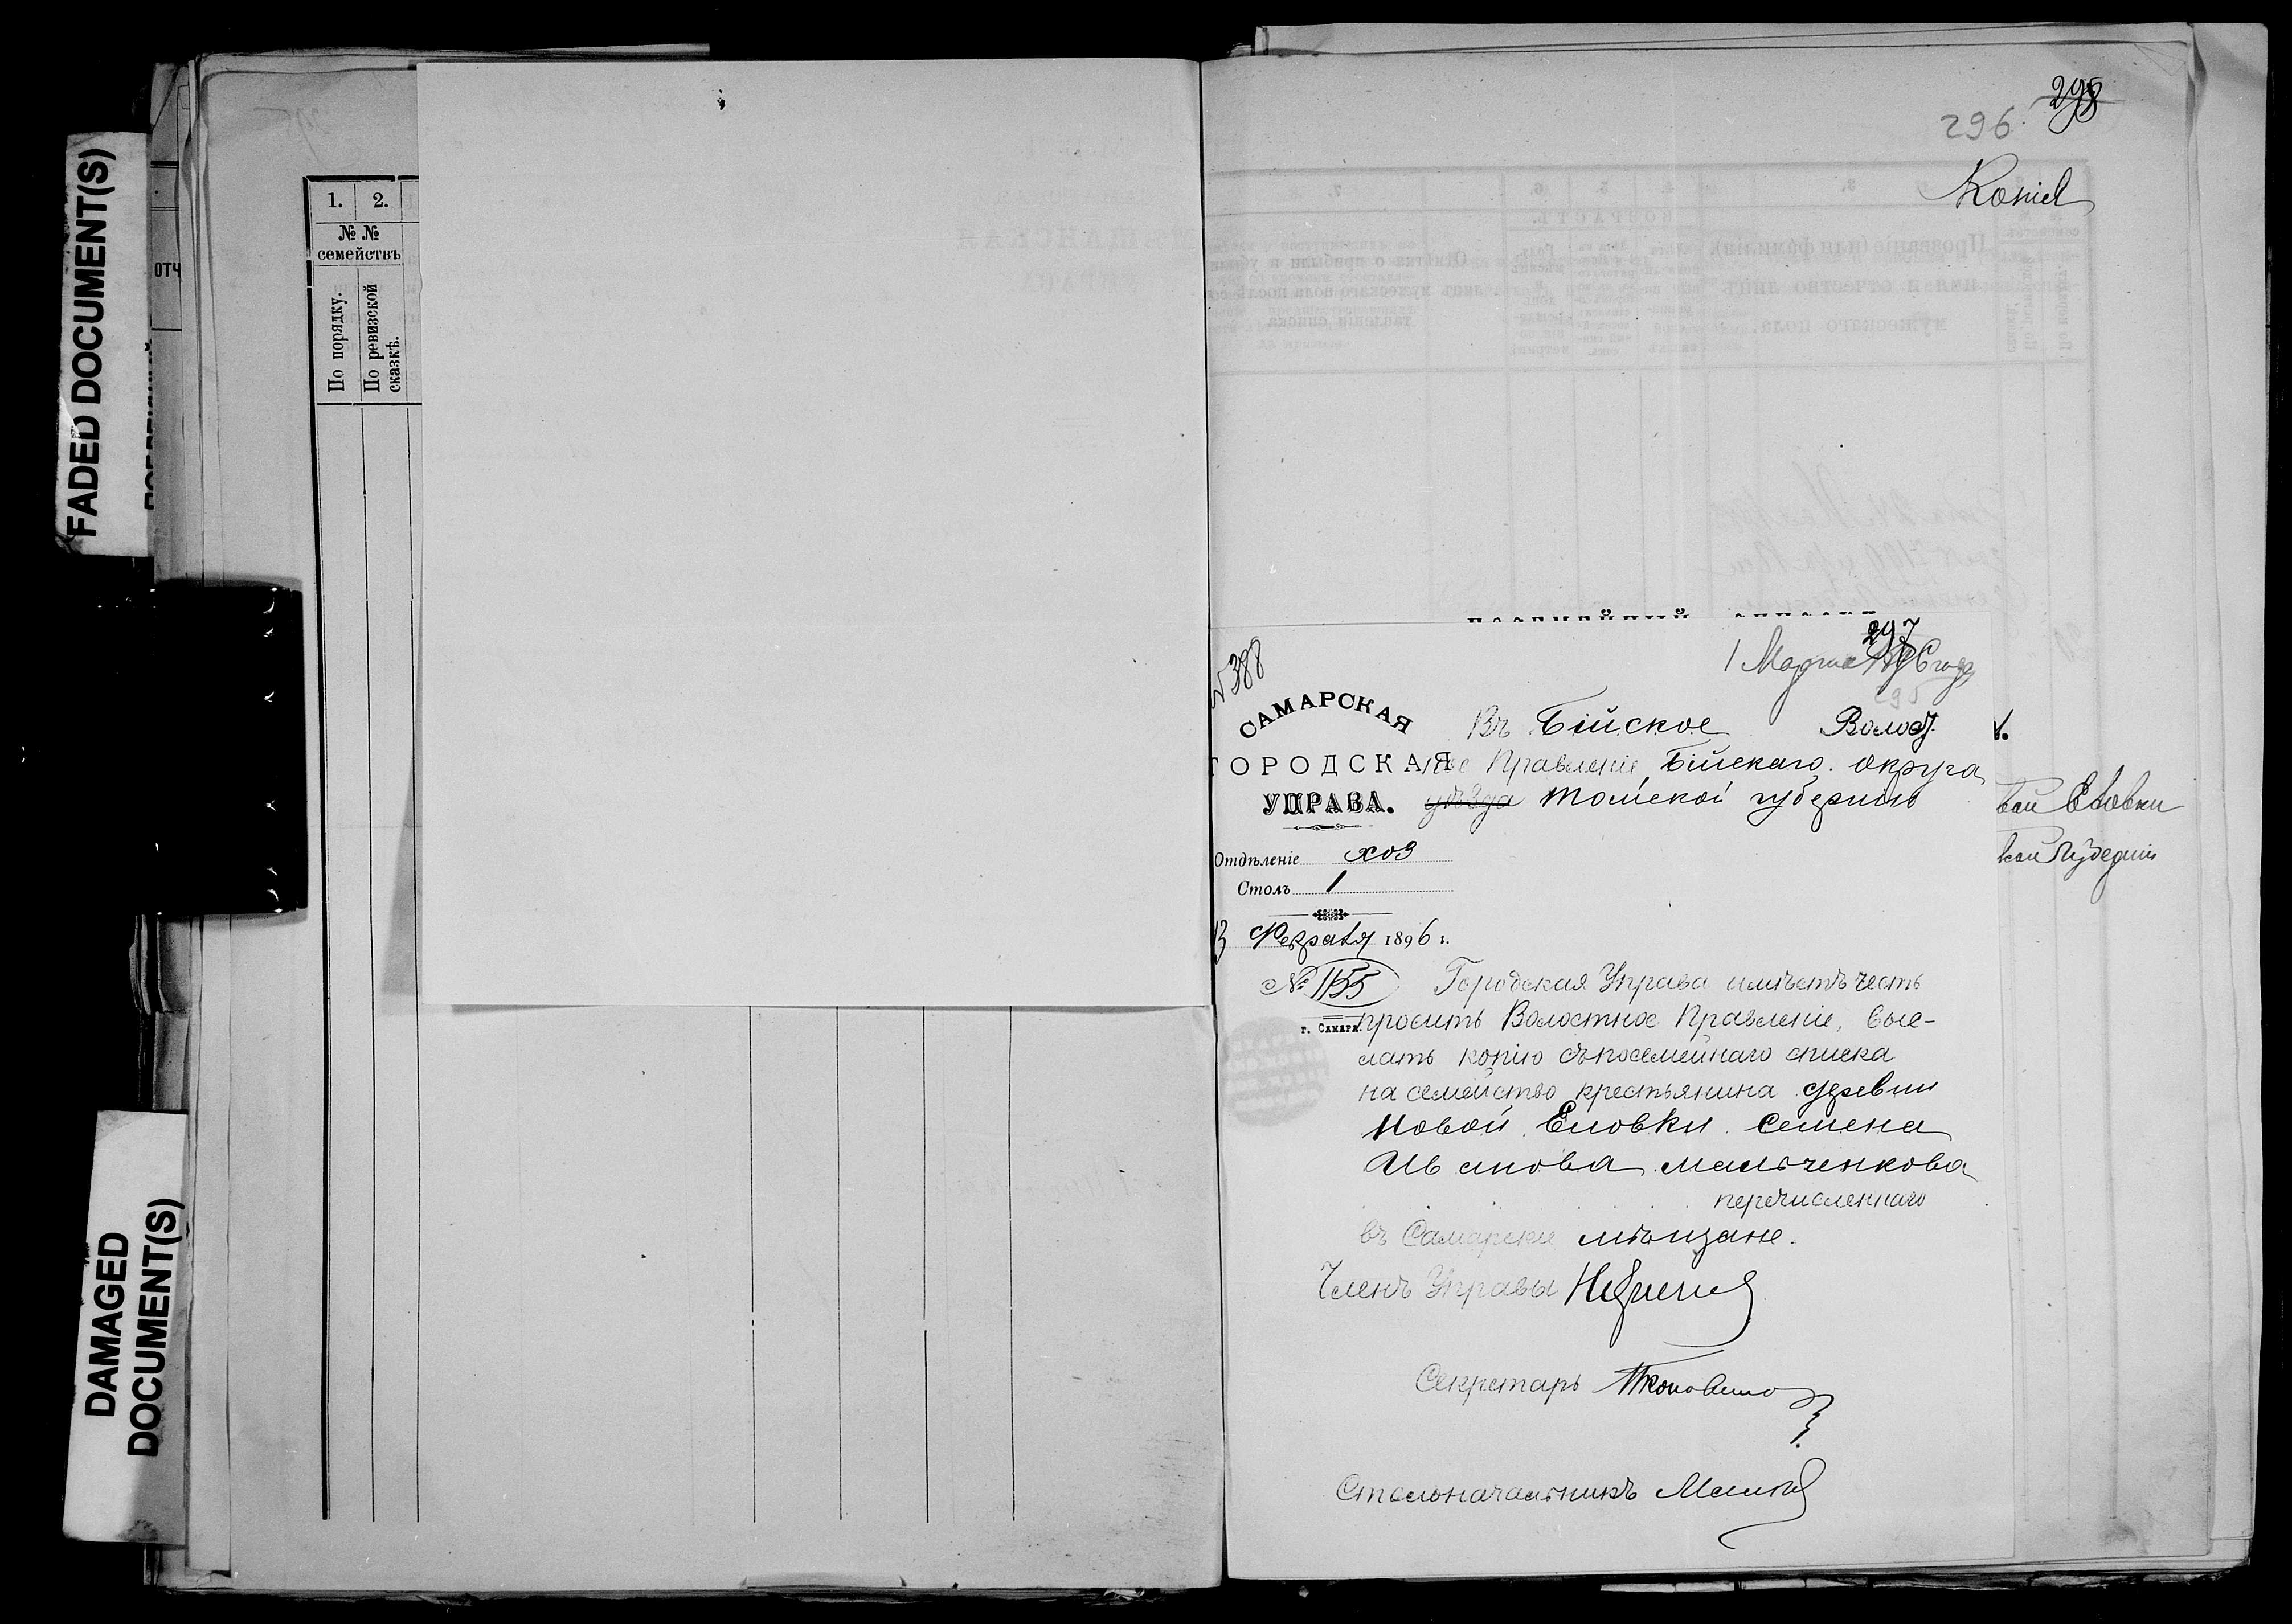 FADED DOCUMENT(S)
DAMAGED
DOCUMENT(S)
ОТЧ
1. 2.
№ №
семействъ
По порядку.
По ревизской
сказкѣ.
296
Копія
№ 388
297
1 Марта 1896 года
295
САМАРСКАЯ
ГОРОДСКАЯ
УПРАВА.
Въ Бійское Волост
ное Правленіе, Бійскаго округа
уѣзда Томской губерніи
вой Еловки
ской Губерніи
Отдѣленіе хоз
Столъ 1
Февраля 1896 г.
№ 1155
г. Самара.
Городская Управа имѣетъ честь
просить Волостное Правленіе, выс-
лать копію съ посемейнаго списка
на семейство крестьянина деревни
Новой Еловки Семена
Иванова Мальченкова
перечисленнаго
въ Самарскіе мѣщане.
Членъ Управы
Секретарь
Столоначальникъ